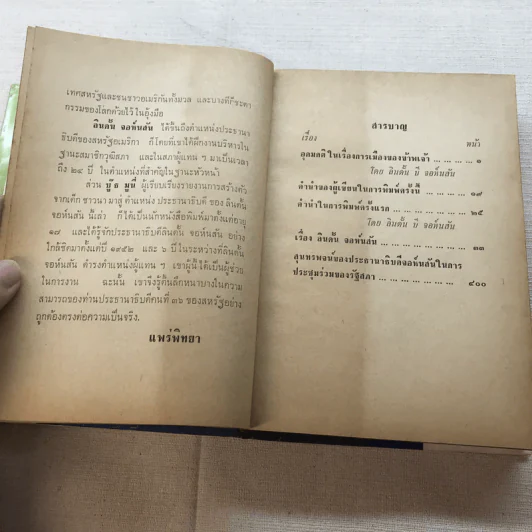 เทศสหรัฐและชนชาวอเมริกันทั้งมวล และบางทีก็ชะตา
กรรมของโลกด้วยไว้ในอุ้งมือ
ลินดั้น จอห์นสัน ได้ขึ้นถึงตำแหน่งประธานา
ธิบดีของสหรัฐอเมริกา ก็โดยที่เขาได้ฝึกงานบริหารใน
ฐานะสมาชิกวุฒิสภา และในสภาผู้แทน ฯ มาเป็นเวลา
ถึง ๒๔ ปี ในตำแหน่งที่สำคัญในฐานะหัวหน้า
ส่วน บู๊ธ มูนี่ ผู้เรียบเรียงรายงานการสร้างตัว
จากเด็ก ชาวนา มาสู่ ตำแหน่ง ประธานาธิบดี ของ ลินดั้น
จอห์นสัน นี้เล่า ก็ได้เป็นนักหนังสือพิมพ์มาตั้งแต่อายุ
๑๗ และได้รู้จักประธานาธิบดีลินดั้น จอห์นสัน อย่าง
ใกล้ชิดมาตั้งแต่ปี ๑๙๕๒ และ ๖ ปีในระหว่างที่ลินดั้น
จอห์นสัน ดำรงตำแหน่งผู้แทน ฯ เขาผู้นี้ได้เป็นผู้ช่วย
ในการงาน ฉะนั้น เขาจึงรู้ตื้นลึกหนาบางในความ
สามารถของท่านประธานาธิบดีคนที่ ๓๖ ของสหรัฐอย่าง
ถูกต้องตรงต่อความเป็นจริง.
แพร่พิทยา
สารบาญ
เรื่อง หน้า
อุดมคติในเรื่องการเมืองของข้าพเจ้า ... ... ... ... ๑
โดย ลินดั้น บี จอห์นสัน
คำนำของผู้เขียนในการพิมพ์ครั้งนี้ ... ... ... ... ๑๙
คำนำในการพิมพ์ครั้งแรก ... ... ... ... ๒๕
โดย ลินดั้น บี จอห์นสัน
เรื่อง ลินดั้น จอห์นสัน ... ... ... ... ๓๓
สุนทรพจน์ของประธานาธิบดีจอห์นสันในการ
ประชุมร่วมของรัฐสภา ... ... ... ... ๔๐๐